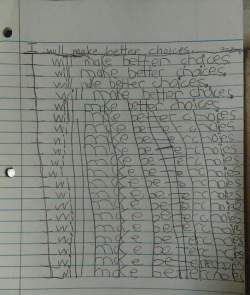 I will make better choices.
I will make better choices
I will make better choices.
I will we better choices.
I will make better choices
I will make better choices.
I will make better choices
I will make better choices.
I will make better choices
I will make better choices
I will make better choices
I will make better choices
I will make better choices
I will make better choices
I will make better choices
I will make better choices
I will make better choices
I will make better choices
I will make better choices
I will make better choices